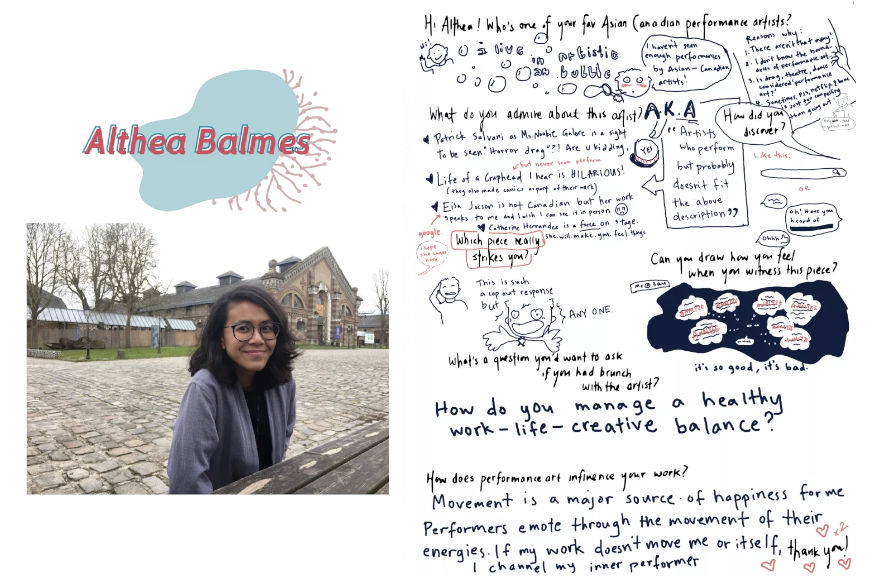 Althea Balmes
Hi Althea! Who's one of your fav Asian Canadian performance artists?
Hi!
I live
in an
artistic
bubble
I haven't seen
enough performances
by Asian-Canadian
artists!
Reasons why:
1. There aren't that many!
2. I don't know the
of performance art
3. Is drag, theatre, dance
considered performance
art?
4. Sometimes, PJs, Netflix &
is just more compelling
than going out
What do you admire about this artist?
A.K.A
How did you
discover?
♥ Patrick Salvani as Ms. Nookie Galore is a sight
to be seen. "Horror drag"?! Are u kidding.
but never seen perform
♥ Life of a Craphead I hear is HILARIOUS!
(they also made comics as part of their work)
♥ Eisa Jocson is not Canadian but her work
speaks to me and I wish I can see it in person
♥ Catherine Hernandez is a force on stage.
She. will. make. you. feel. things.
google.
I hope
she comes
here
YES!
"Artists
who perform
but probably
doesn't fit
the above
description"
Like this:
OR
Oh! Have you
heard of
Ohhh
Which piece really
strikes you?
This is such
a cop out response
but
ANY ONE.
Can you draw how you feel
when you witness this piece?
me @ 3am
it's so good, it's bad.
What's a question you'd want to ask
if you had brunch
with the artist?
How do you manage a healthy
work-life-creative balance?
How does performance art influence your work?
Movement is a major source of happiness for me
Performers emote through the movement of their
energies. If my work doesn't move me or itself,
I channel my inner performer
x2
thank you!